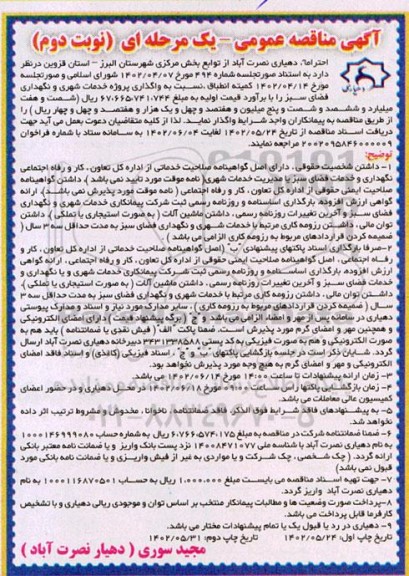 آگهی مناقصه عمومی – یک مرحله ای (نوبت دوم)
احتراماً، دهیاری نصرت آباد از توابع بخش مرکزی شهرستان البرز – استان قزوین درنظر
دارد به استناد صورتجلسه شماره ۴۹۴ مورخ ۱۴۰۲/۰۴/۰۷ شورای اسلامی و صورتجلسه
مورخ ۱۴۰۲/۰۴/۱۴ کمیته انطباق ،نسبت به واگذاری پروژه خدمات شهری و نگهداری
فضای سبز را با برآورد قیمت اولیه به مبلغ ۶۷،۶۶۵،۷۴۱،۷۴۴ ریال (شصت و هفت
میلیارد و ششصد و شصت و پنج میلیون و هفتصد و چهل و یک هزار و هفتصد و چهل و چهار ریال ) را
از طریق مناقصه به پیمانکاران واجد شرایط واگذار نماید. لذا از کلیه متقاضیان دعوت بعمل می آید جهت
دریافت اسناد مناقصه از تاریخ ۱۴۰۲/۰۵/۲۴ لغایت ۱۴۰۲/۰۶/۰۴ به سامانه ستاد با شماره فراخوان
۲۰۰۲۰۹۵۸۴۶۰۰۰۰۰۹ مراجعه نمایند.
توضیح:
۱- داشتن شخصیت حقوقی، دارای اصل گواهینامه صلاحیت خدماتی از اداره کل تعاون، کار و رفاه اجتماعی
نگهداری و خدمات فضای سبز یا مدیریت خدمات شهری (نامه موقت مورد تایید نمی باشد)، داشتن گواهینامه
صلاحیت ایمنی حقوقی از اداره کل تعاون، کار و رفاه اجتماعی ( نامه موقت مورد پذیرش نمی باشد)، ارائه
گواهی ارزش افزوده، بارگذاری اساسنامه و روزنامه رسمی ثبت شرکت پیمانکاری خدمات شهری و نگهداری
فضای سبز و آخرین تغییرات روزنامه رسمی، داشتن ماشین آلات ( به صورت استیجاری یا تملکی)، داشتن
توان مالی، داشتن رزومه کاری مرتبط با خدمات شهری و نگهداری فضای سبز به مدت حداقل سه ۳ سال (
ضمیمه کردن قراردادهای مربوط به رزومه کاری الزامی می باشد )
۲-صرفا بارگذاری اسناد پاکتهای پیشنهادی "ب" (اصل گواهینامه صلاحیت خدماتی از اداره کل تعاون، کار و
رفاه اجتماعی ، اصل گواهینامه صلاحیت ایمنی حقوقی از اداره کل تعاون، کار و رفاه اجتماعی، ارائه گواهی
ارزش افزوده، بارگذاری اساسنامه و روزنامه رسمی ثبت شرکت پیمانکاری خدمات شهری و یا نگهداری و
خدمات فضای سبز و آخرین تغییرات روزنامه رسمی، داشتن ماشین آلات ( به صورت استیجاری یا تملکی)،
داشتن توان مالی، داشتن رزومه کاری مرتبط با خدمات شهری و نگهداری فضای سبز به مدت حداقل سه ۳
سال ( ضمیمه کردن قراردادهای مربوط به رزومه کاری ) ، سایر مدارک مورد نیاز و اسناد و مدارک پیوستی
دهیاری در سامانه پس از مهر و امضاء الزامی می باشد) و "ج" (برگه پیشنهاد قیمت) دارای امضای الکترونیکی
و همچنین مهر و امضای گرم مورد پذیرش است. ضمنا پاکت "الف" (فیش نقدی یا ضمانتنامه ) باید هم به
صورت الکترونیکی و هم به صورت فیزیکی به کد پستی ۳۴۳۱۳۳۸۵۸۸ دبیرخانه دهیاری نصرت آباد ارسال
گردد. شایان ذکر است در جلسه بازگشایی پاکتهای "ب" و "ج" ، اسناد فیزیکی (کاغذی) و اسناد فاقد امضای
الکترونیکی و مهر و امضای گرم به هیچ وجه مورد پذیرش نخواهد بود.
۳- زمان ارائه پیشنهادات تا ساعت ۱۴:۰۰ مورخ ۱۴۰۲/۰۶/۱۴ می باشد.
۴- زمان بازگشایی پاکتها راس ساعت ۱۰:۰۰ مورخ ۱۴۰۲/۰۶/۱۸ در محل دهیاری و در حضور اعضای
کمیسیون عالی معاملات می باشد.
۵- به پیشنهادهای فاقد شرایط فوق الذکر، فاقد ضمانتنامه ، ناخوانا، مخدوش و مشروط ترتیب اثر داده
نخواهد شد.
۶- ضمنا ضمانتنامه شرکت در مناقصه به مبلغ ۶،۷۶۶،۵۷۴،۱۷۵ ریال به شماره حساب ۱۰۰۰۱۴۶۹۹۹۰۸۰
به نام دهیاری نصرت آباد با شناسه ملی ۱۴۰۰۸۴۷۱۰۷۷ نزد پست بانک واریز و یا ضمانت نامه معتبر بانکی
ارائه گردد. ( چک شخصی، چک شرکت و یا مواردی به غیر از فیش واریزی و یا ضمانت نامه بانکی مورد
قبول نمی باشد)
۷- جهت تهیه اسناد مناقصه می بایست مبلغ ۱،۰۰۰،۰۰۰ ریال به حساب ۱۰۰۰۱۱۶۸۷۰۵۰۱ به نام
دهیاری نصرت آباد واریز گردد.
۸-پرداخت صورت وضعیت ها و مطالبات پیمانکار منتخب بر اساس توان و موجودی ریالی دهیاری و با تشخیص
کارفرما قابل پرداخت می باشد.
۹- دهیاری در رد یا قبول یک یا تمام پیشنهادات مختار می باشد.
تاریخ چاپ اول: ۱۴۰۲/۰۵/۲۴ تاریخ چاپ دوم: ۱۴۰۲/۰۵/۳۱
مجید سوری ( دهیار نصرت آباد )